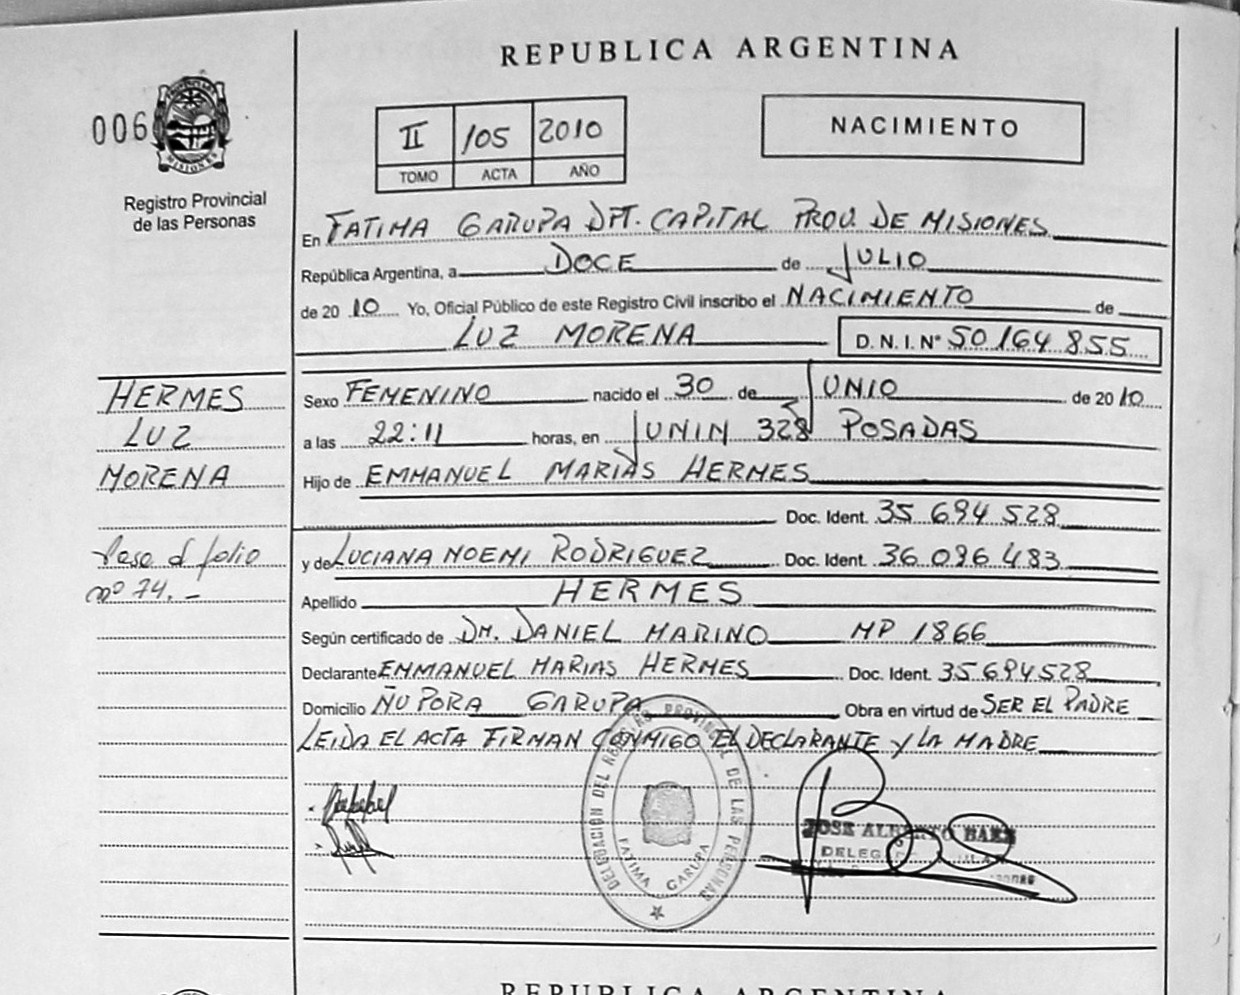 REPUBLICA ARGENTINA
006
MISIONES
Registro Provincial
de las Personas
II /105 2010
TOMO ACTA AÑO
NACIMIENTO
En FATIMA GARUPA DPT. CAPITAL PROV. DE MISIONES
República Argentina, a DOCE de JULIO
de 2010 Yo, Oficial Público de este Registro Civil inscribo el NACIMIENTO de
LUZ MORENA D.N.I. Nº 50 164 855
HERMES
LUZ
MORENA
Sexo FEMENINO nacido el 30 de JUNIO de 2010
a las 22:11 horas, en JUNIN 328 POSADAS
Hijo de EMMANUEL MARIAS HERMES
Doc. Ident. 35 694 528
Pase al folio
nº 74.-
y de LUCIANA NOEMI RODRIGUEZ Doc. Ident. 36 096 483
Apellido HERMES
Según certificado de DR. DANIEL MARINO MP 1866
Declarante EMMANUEL MARIAS HERMES Doc. Ident. 35 694528
Domicilio ÑU PORA GARUPA Obra en virtud de SER EL PADRE
LEIDA EL ACTA FIRMAN CONMIGO EL DECLARANTE Y LA MADRE
DELEGACION DEL REGISTRO PROVINCIAL DE LAS PERSONAS
FATIMA GARUPA
JOSE ALBERTO BAEZ
REPUBLICA ARGENTINA